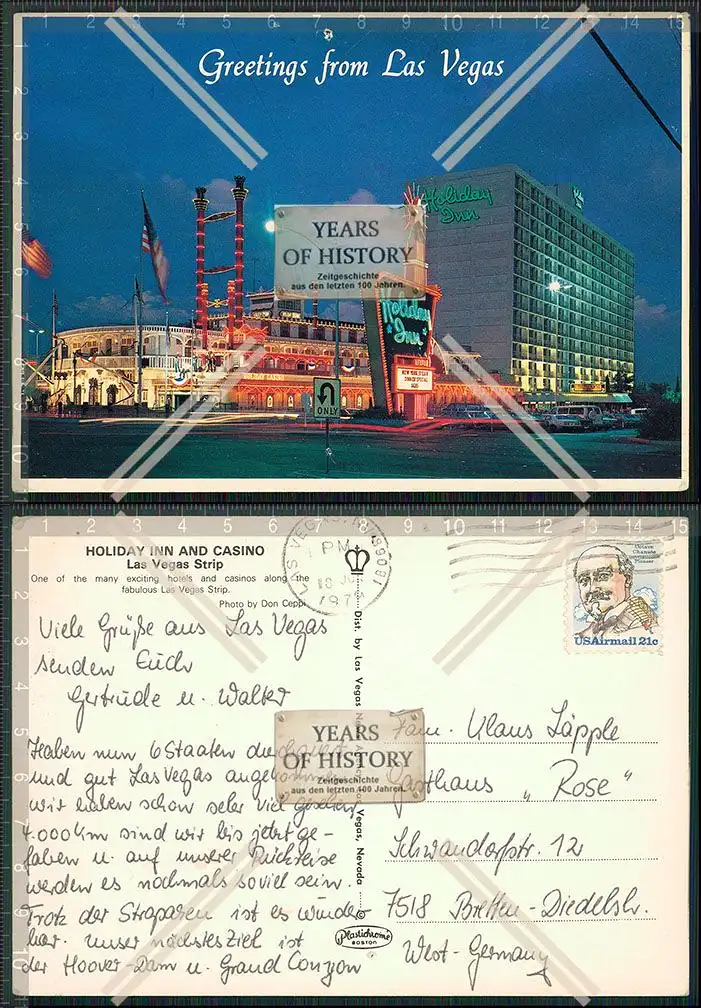 Greetings from Las Vegas
Holiday
Inn
YEARS
OF HISTORY
Zeitgeschichte
aus den letzten 100 Jahren.
Holiday
Inn
ONLY
HOLIDAY INN AND CASINO
Las Vegas Strip
One of the many exciting hotels and casinos along the
fabulous Las Vegas Strip.
Photo by Don Ceppi
LAS VEGAS, NV 89081
PM
197
Octave
Chanute
Pioneer
USAirmail 21c
Viele Grüße aus Las Vegas
senden Euch
Gertrude u. Walter
Haben nun 6 Staaten
und gut Las Vegas
wir haben schon sehr viel gesehen,
4.000 km sind wir bis jetzt ge-
fahren u. auf unserer Rückreise
werden es nochmals soviel sein.
Trotz der Strapazen ist es wunder
bar. unser nächstes Ziel ist
der Hoover-Dam u. Grand Canyon
Dist. by Las Vegas
Vegas, Nevada
Plastichrome
BOSTON
YEARS
OF HISTORY
Zeitgeschichte
aus den letzten 100 Jahren.
Fam. Klaus Läpple
Gasthaus „Rose"
Schwandorfstr. 12
7518 Bretten-Diedelsh.
West-Germany